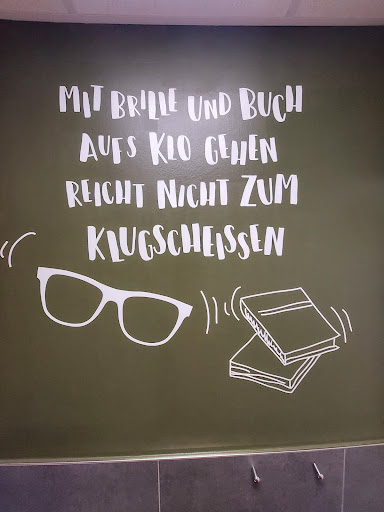 MIT BRILLE UND BUCH
AUFS KLO GEHEN
REICHT NICHT ZUM
KLUGSCHEISSEN